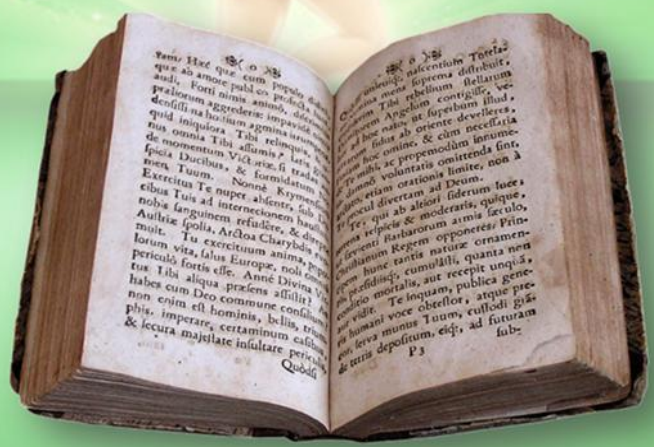 0
tam? Hæc quæ cum populo
quæ ab amore publico profecta
audi. Forti nimis animo,
præliorum aggrederis: impavidè
densissima hostium agmina
quid iniquiora Tibi relinquis,
nus omnia Tibi assumis, satis
de momentum Victoriæ, si tradas
spicia Ducibus, & formidatum
men Tuum. Nonnè Krymenses
Exercitus Te nuper absente, sub
cibus Tuis ad internecionem
nobis sanguinem refudêre, &
Austriæ spolia, Arctoa Charybdis
muit. Tu exercituum anima,
lorum vita, salus Europæ, noli
periculô fortis esse. Annè Divina
tus Tibi aliqua præsens assistit?
habes cum Deo commune consilium?
non enim est hominis, bellis,
phis, imperare, certaminum casibus,
& secura majestate insultare
Quòdsi
0
nascentium Tutela-
mens suprema distribuit,
Tibi rebellium stellarum
Angelum contigisse, ve-
ad hoc nato, ut superbum illud,
sidus ab oriente develleres,
hoc omine, & cùm necessaria
mihi, ac propemodùm innume-
damnô voluntatis omittenda sint,
etiam orationis limite, non à
Te procul divertam ad Deum.
Te, qui ab altiori siderum luce,
respicis & moderaris, quique,
sævienti Barbarorum armis sæculo,
Christianum Regem opponeres, Prin-
hunc tantis naturæ ornamen-
præsidiisq́; cumulâsti, quanta non
conditio mortalis, aut recepit unquã,
aut vidit. Te inquam, publica gene-
ris humani voce obtestor, atque pre-
cor, serva munus Tuum, custodi
de terris depositum, eiq́; ad futuram
P 3
sub-